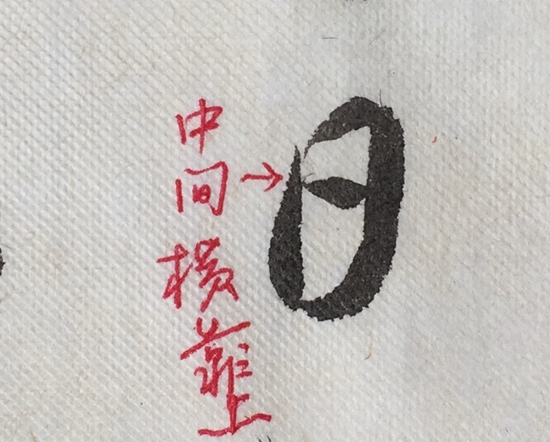 中间横靠上
日